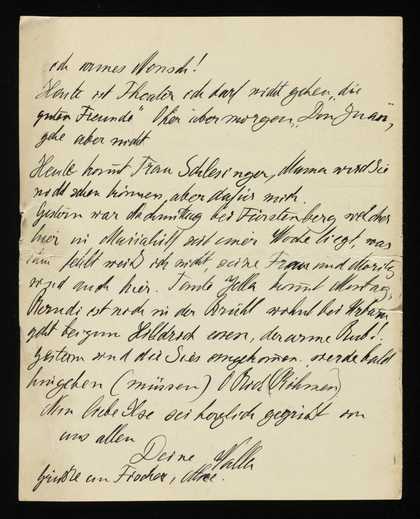 ich armes Mensch!
Heute ist Theater ich darf nicht gehen, „die
guten Freunde" Oper übermorgen, „Don Juan",
gehe aber nicht
Heute kommt Frau Schlesinger, Mama wird Sie
nicht sehen können, aber dafür mich.
Gestern war Nachmittag bei Fürstenberg welcher
hier in Mariahilf seit einer Woche liegt, was
ihm fehlt weiß ich nicht, seine Frau und Moritz
sind auch hier. Tante Jella kommt Montag,
ist noch in der Brühl wohnt bei
geht bei zum essen, der arme Bub!
Gestern sind die angekommen. werde bald
hingehen (müssen) O
Nun liebe Ilse sei herzlich gegrüßt von
uns allen
Deine
Grüße an